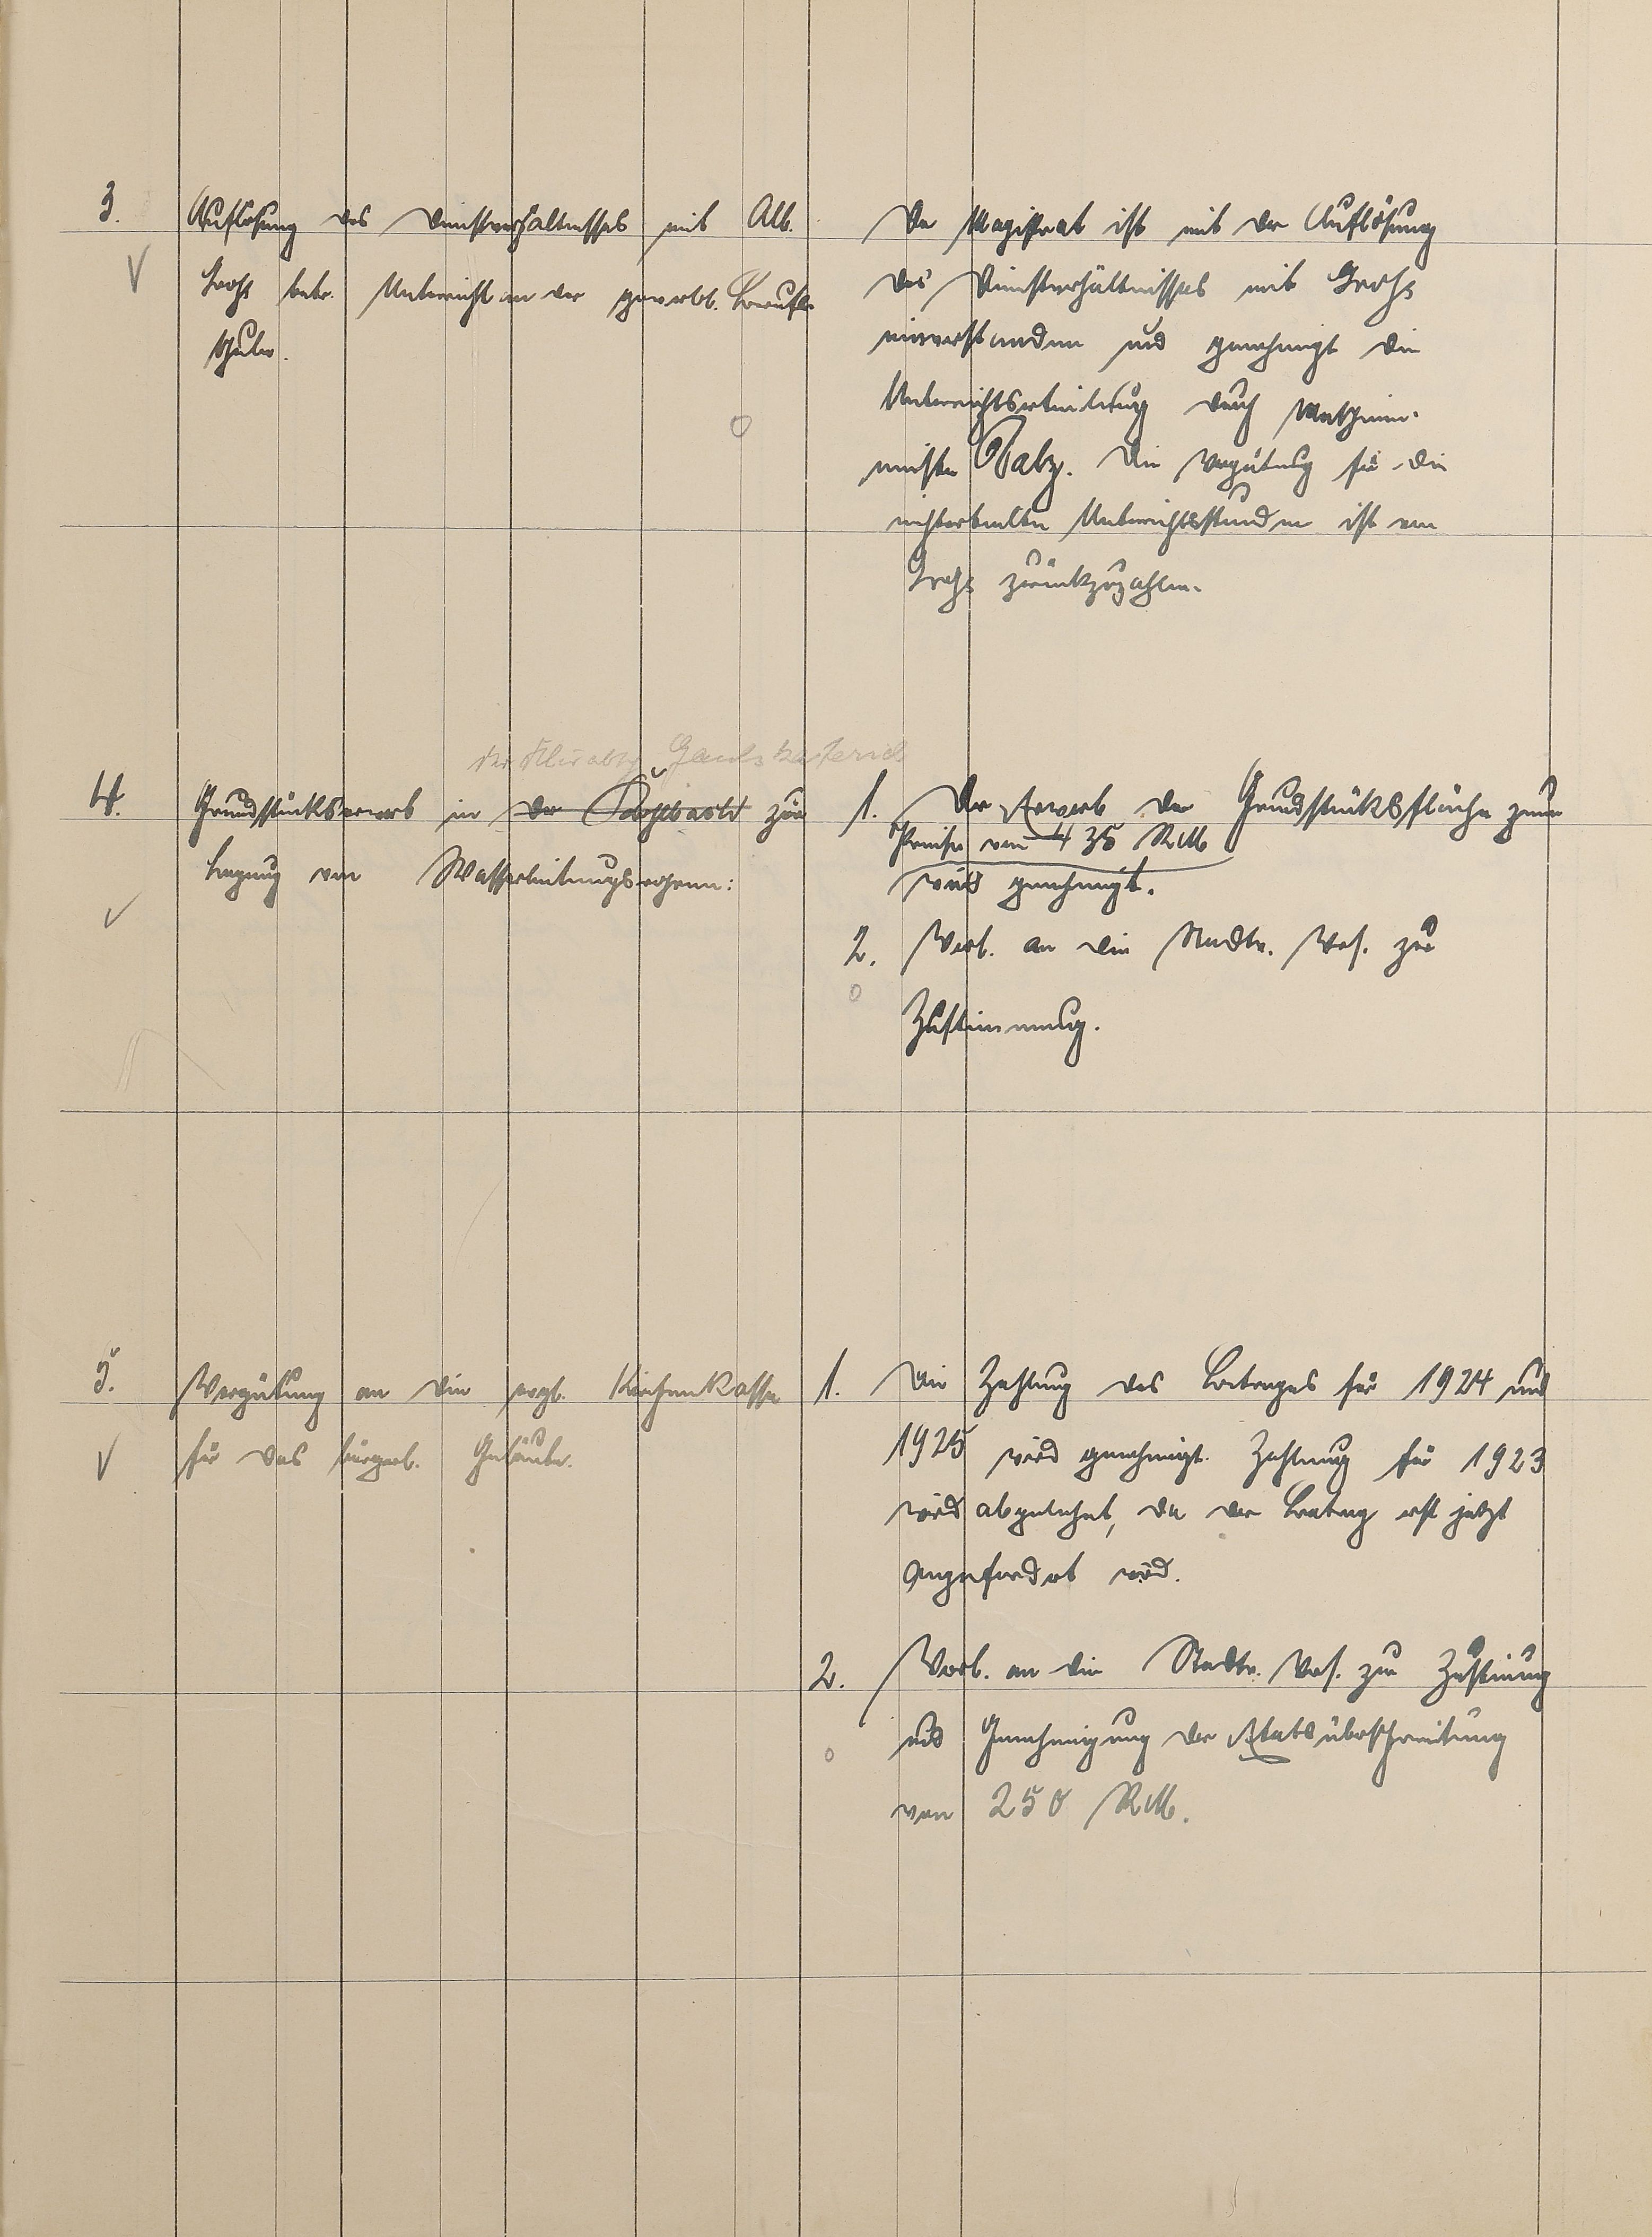 3.
Auflösung des Dienstverhältnisses mit Alb.
betr. Unterricht an der gewerbl. Berufs-
schule.
Der Magistrat ist mit der Auflösung
des Dienstverhältnisses mit Grohs
einverstanden und genehmigt die
Unterrichtserteilung durch Maschinen-
meister Raby. Die Vergütung für die
nichterteilten Unterrichtsstunden ist von
Grohs zurückzuzahlen.
4.
Grundstückserwerb in der zur
Legung von Wasserleitungsrohren:
1. Der Erwerb der Grundstücksfläche zum
Preise von 435 RM
wird genehmigt.
2. Vorl. an die Stadtv. Vers. zur
Zustimmung.
5.
Vergütung an die evgl. Kirchenkasse
für das bürgerl. Geläute.
1. Die Zahlung des Betrages für 1924 und
1925 wird genehmigt. Zahlung für 1923
wird abgelehnt, da der Betrag erst jetzt
angefordert wird.
2. Vorl. an die Stadtv. Vers. zur Zustimmung
und Genehmigung der Etatsüberschreitung
von 250 RM.